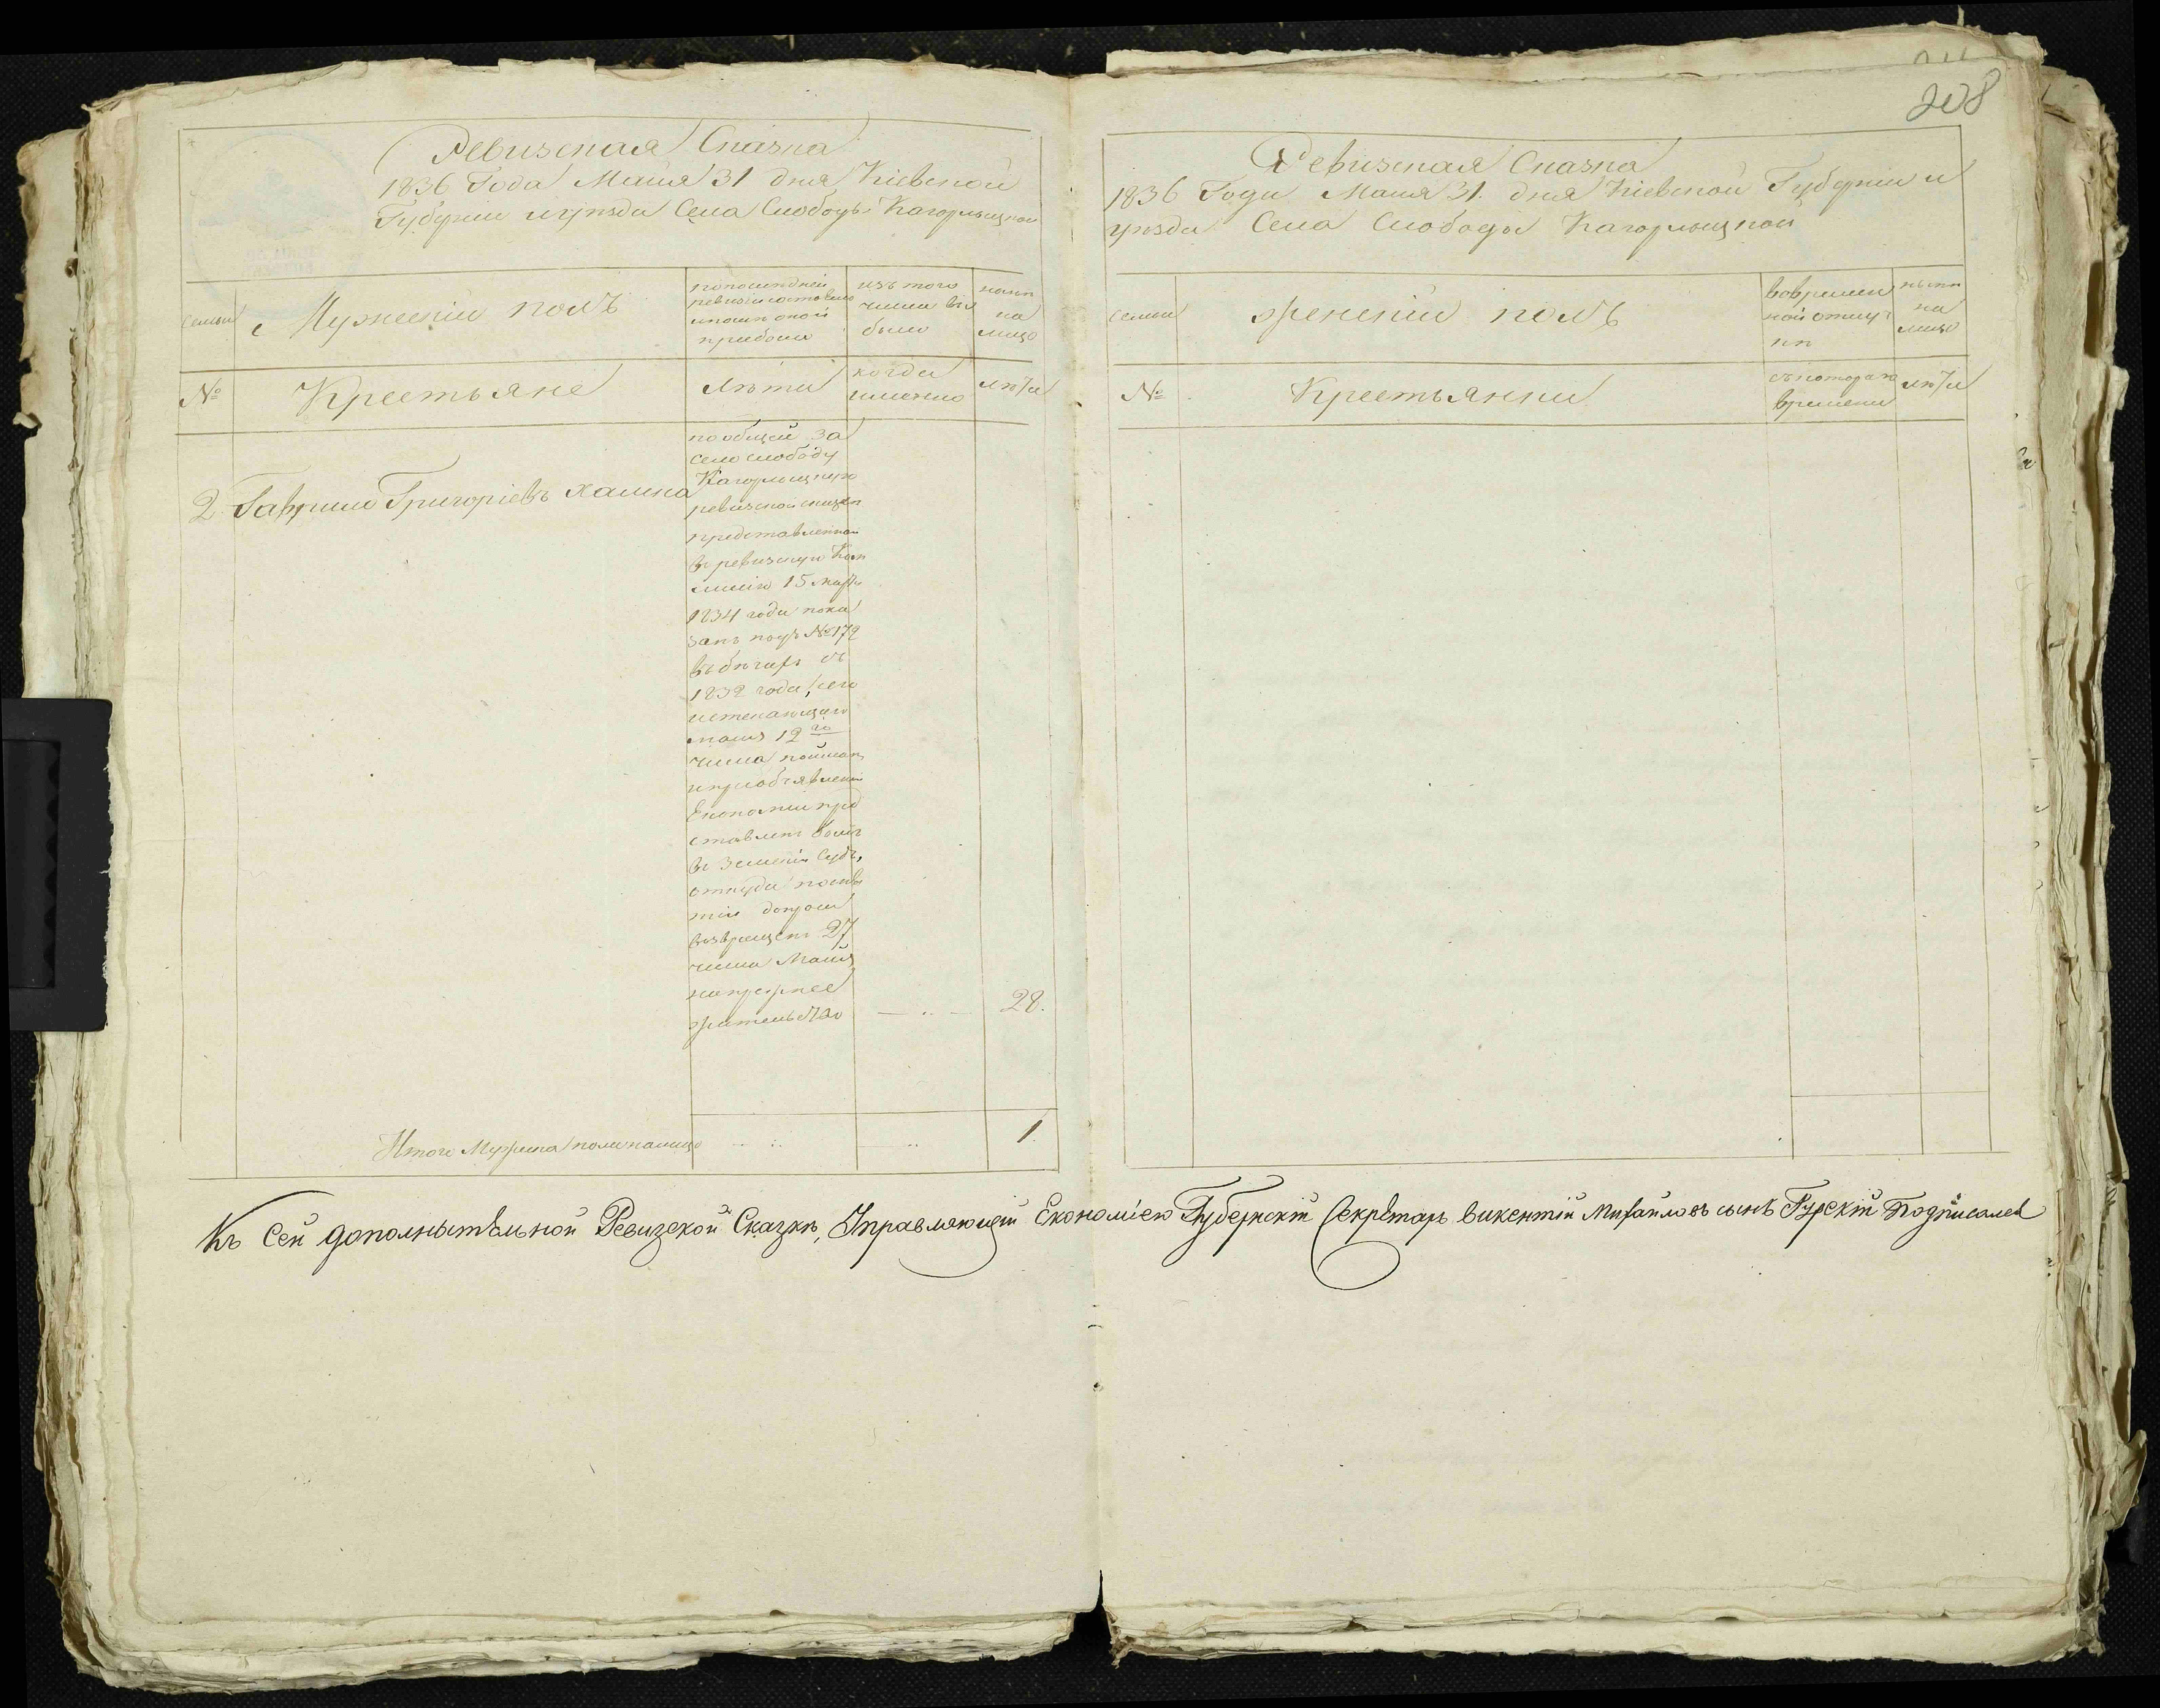 208
Ревизская Сказка
1836 Года Маия 31 дня Кіевской
Губерніи и уѣзда Села Слободы Кагорлыцкой
семьи
Мужескій полъ
по последней
ревизіи состояло
и после оной
прибыло
изъ того
числа вы
было
нынѣ
на
лицо
№
Крестьяне
Лѣта
когда
имянно
лѣта
2 Гаврило Григоріевъ Халина
по общей за
село слободу
Кагорлыцкую
ревизской сказкѣ
представленной
въ ревизскую Ком
мисію 15 марта
1834 года пока
занъ подъ № 172
въ бѣгахъ съ
1832 года, сего
истекающаго
маия 12го
числа пойманъ
и при объявленіи
Економіи пред
ставленъ былъ
въ Земскій Судъ,
откуда по
допросе
возвращенъ 27
числа Маия
на прежнее
жительство — .. — 28.
Итого Мужеска пола на лицо .. .. — .. 1
Ревизская Сказка
1836 Года Маия 31. дня Кіевской Губерніи и
уѣзда Села Слободы Кагорлыцкой
семьи
Женскій полъ
во времен
ной отлуч
кѣ
нынѣ
на
лицо
№
Крестьянки
съ котораго
времени
лѣта
Къ сей дополнытельной Ревизской Сказкѣ, Управляющій Економіею Губернскій Секретарь викентій Михайловъ сынъ Гурскій Подписался